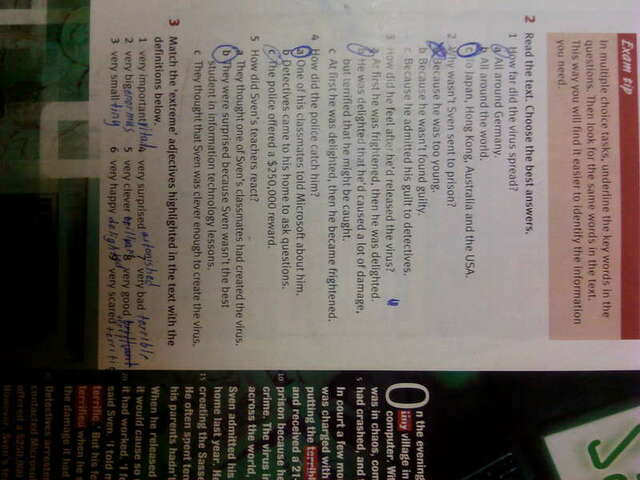 Exam tip
In multiple choice tasks, underline the key words in the
questions. Then look for the same words in the text.
This way you will find it easier to identify the information
you need.
2 Read the text. Choose the best answers.
1 How far did the virus spread?
a All around Germany.
b All around the world.
c To Japan, Hong Kong, Australia and the USA.
2 Why wasn't Sven sent to prison?
a Because he was too young.
b Because he wasn't found guilty.
c Because he admitted his guilt to detectives.
3 How did he feel after he'd released the virus?
a At first he was frightened, then he was delighted.
b He was delighted that he'd caused a lot of damage,
but terrified that he might be caught.
c At first he was delighted, then he became frightened.
4 How did the police catch him?
a One of his classmates told Microsoft about him.
b Detectives came to his home to ask questions.
c The police offered a $250,000 reward.
5 How did Sven's teachers react?
a They thought one of Sven's classmates had created the virus.
b They were surprised because Sven wasn't the best
student in information technology lessons.
c They thought that Sven was clever enough to create the virus.
3 Match the 'extreme' adjectives highlighted in the text with the
definitions below.
1 very important vital 4 very surprised astonished 7 very bad terrible
2 very big enormous 5 very clever brilliant 8 very good
3 very small tiny 6 very happy 9 very scared
On the evening
tiny village in
computer. Wi
was in chaos, com
5 had crashed, and
In court a few mo
was charged with
putting the terrib
and received a 21-
10 prison because he
crime. The virus i
across the world,
Sven admitted his
home last year. He
15 creating the Sasse
He often spent ten
his parents hadn't
When he released
it would cause so
it had worked. 'I f
said Sven. 'I told m
terrific.' But his fe
terrified when he
the damage it had
Detectives
contacted Microso
offered a $250,000
However, Sven's te